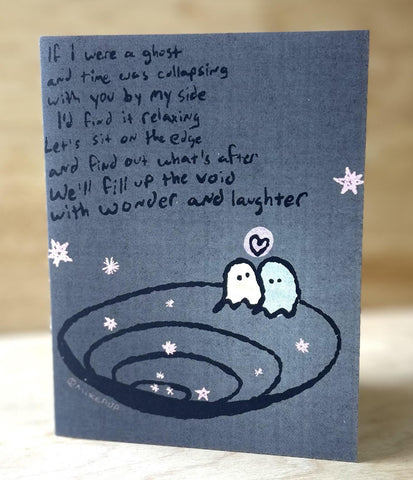 If I were a ghost
and time was collapsing
with you by my side
I'd find it relaxing
Let's sit on the edge
and find out what's after
We'll fill up the void
with wonder and laughter